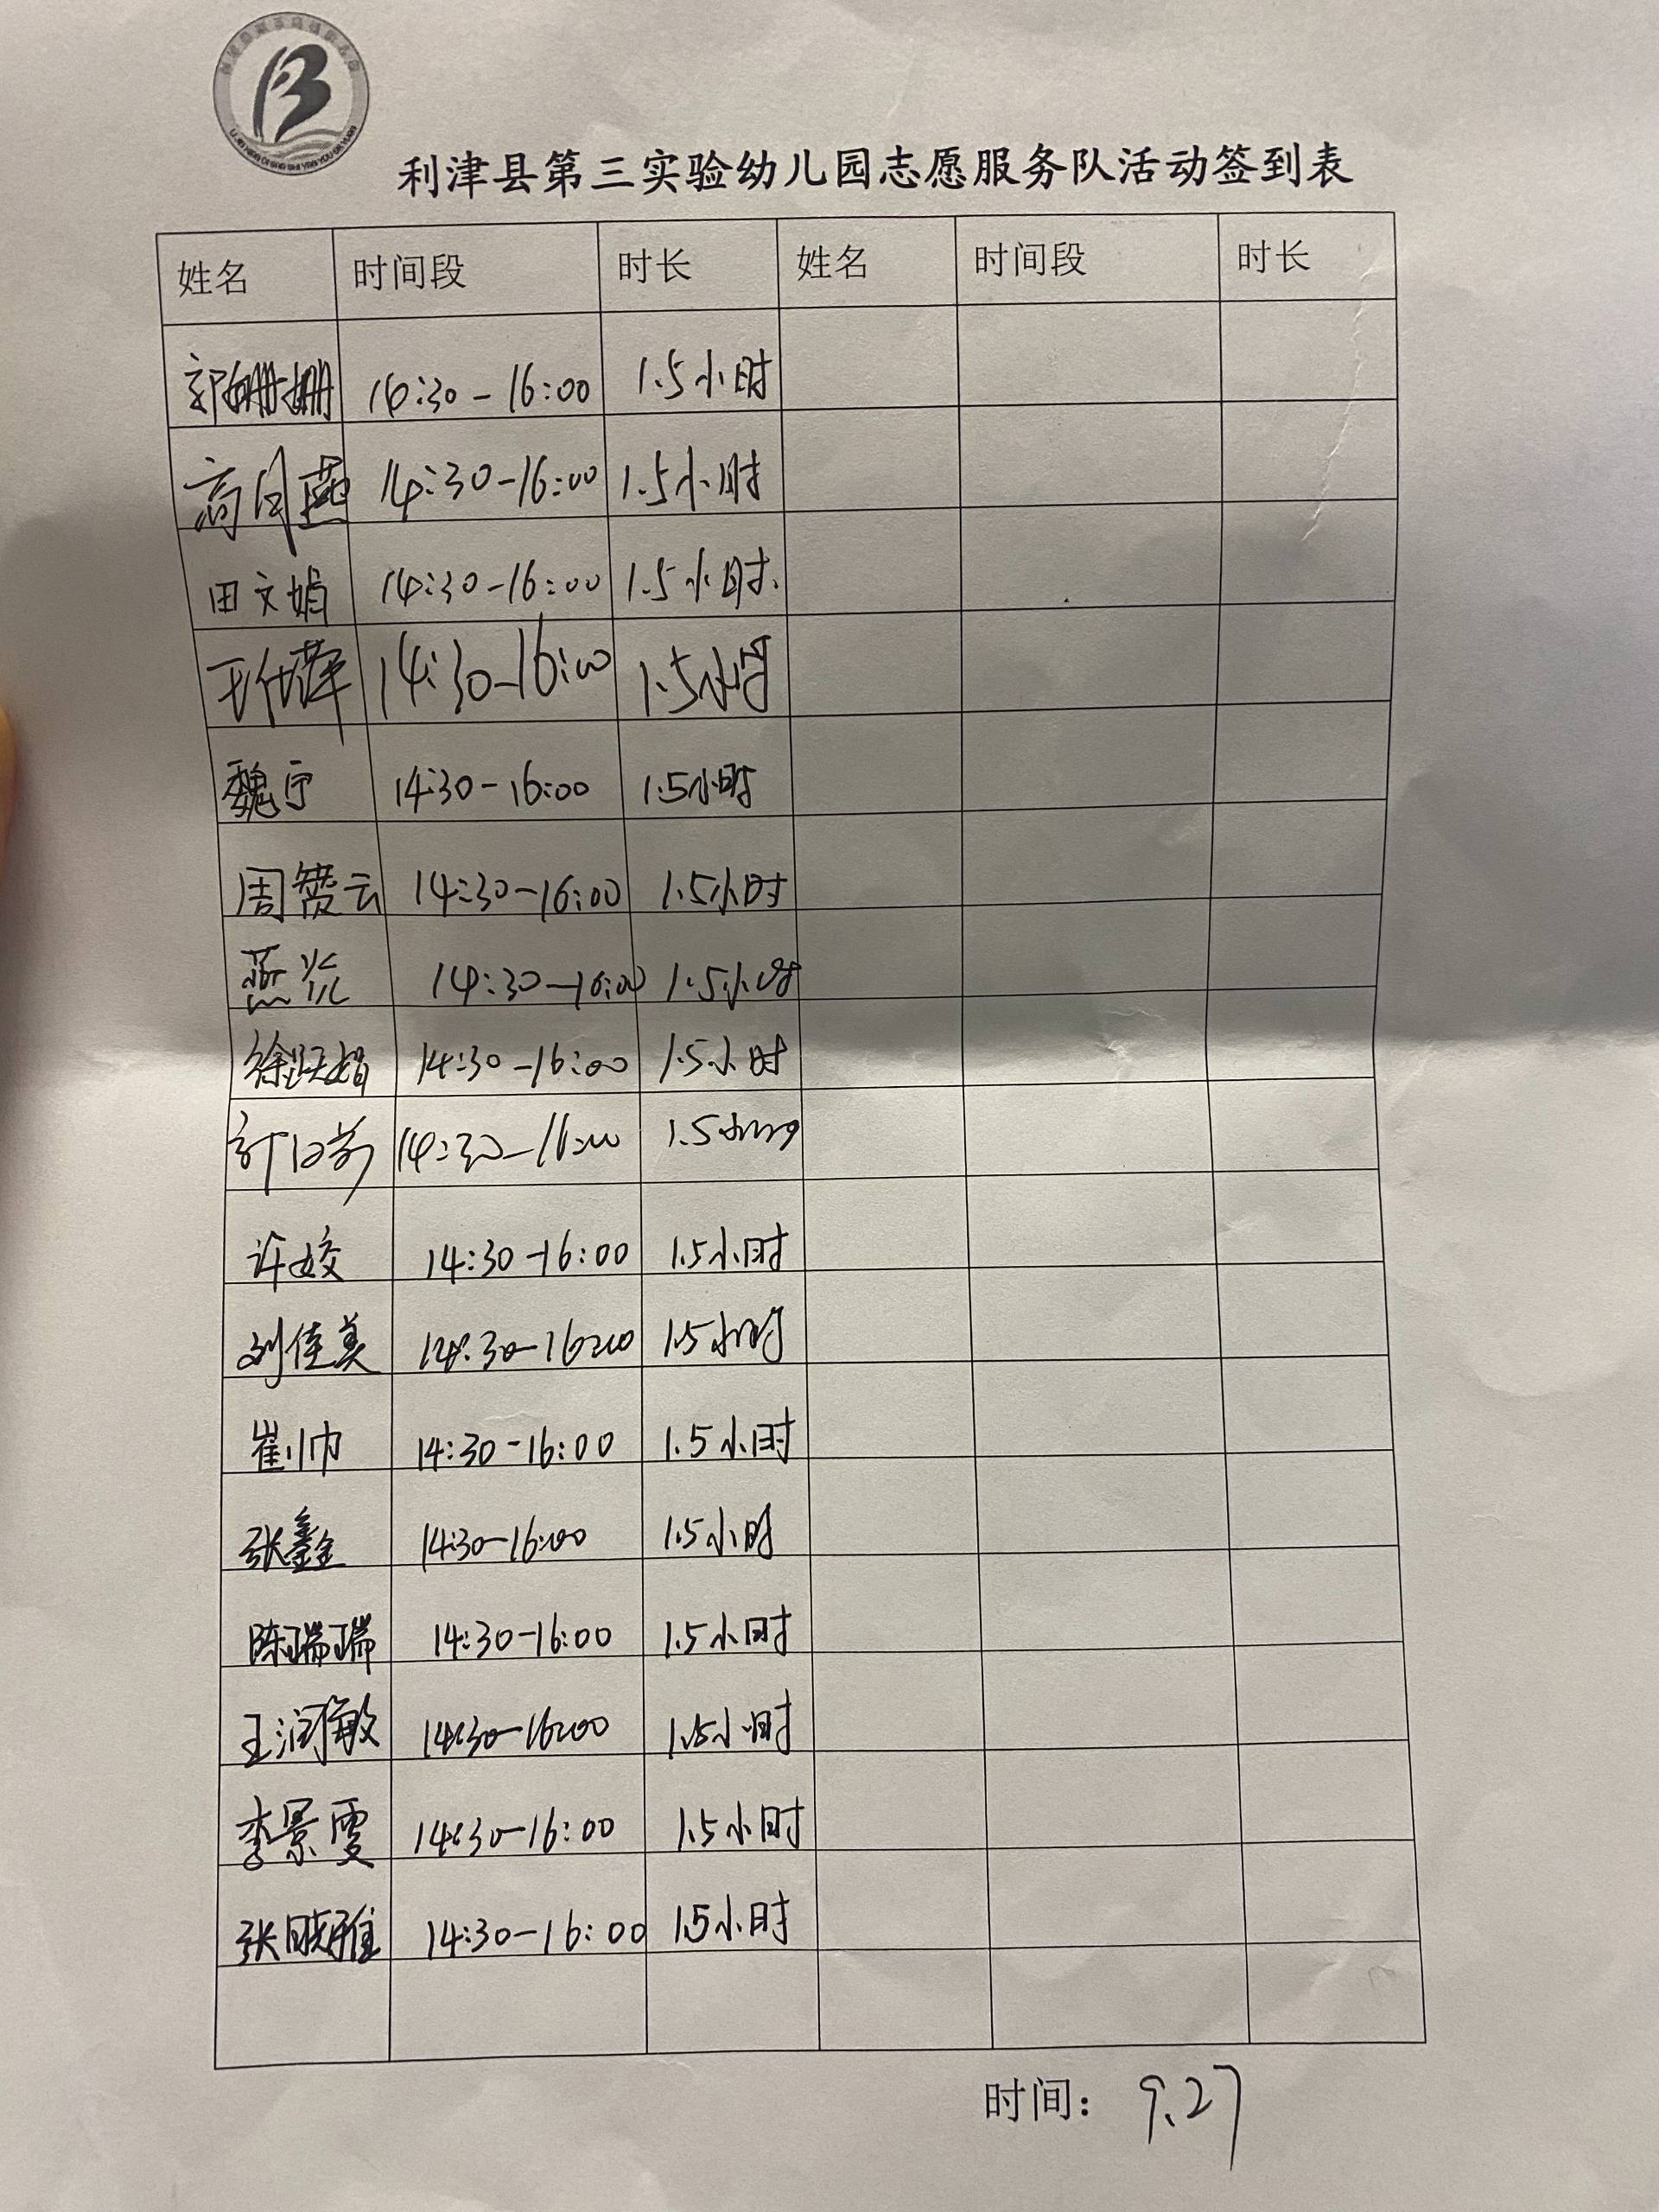 利津县第三实验幼儿园志愿服务队活动签到表
姓名 时间段 时长 姓名 时间段 时长
郭姗姗 14:30-16:00 1.5小时
高月燕 14:30-16:00 1.5小时
田文娟 14:30-16:00 1.5小时.
王 14:30-16:00 1.5小时
魏宁 14:30-16:00 1.5小时
周赟云 14:30-16:00 1.5小时
燕 14:30-16:00 1.5小时
徐跃娟 14:30-16:00 1.5小时
14:30-16:00 1.5小时
许姣 14:30-16:00 1.5小时
刘佳美 14:30-16:00 1.5小时
崔巾 14:30-16:00 1.5小时
张鑫 14:30-16:00 1.5小时
陈瑞瑞 14:30-16:00 1.5小时
王润敏 14:30-16:00 1.5小时
李景雯 14:30-16:00 1.5小时
张雅 14:30-16:00 1.5小时
时间: 9.27